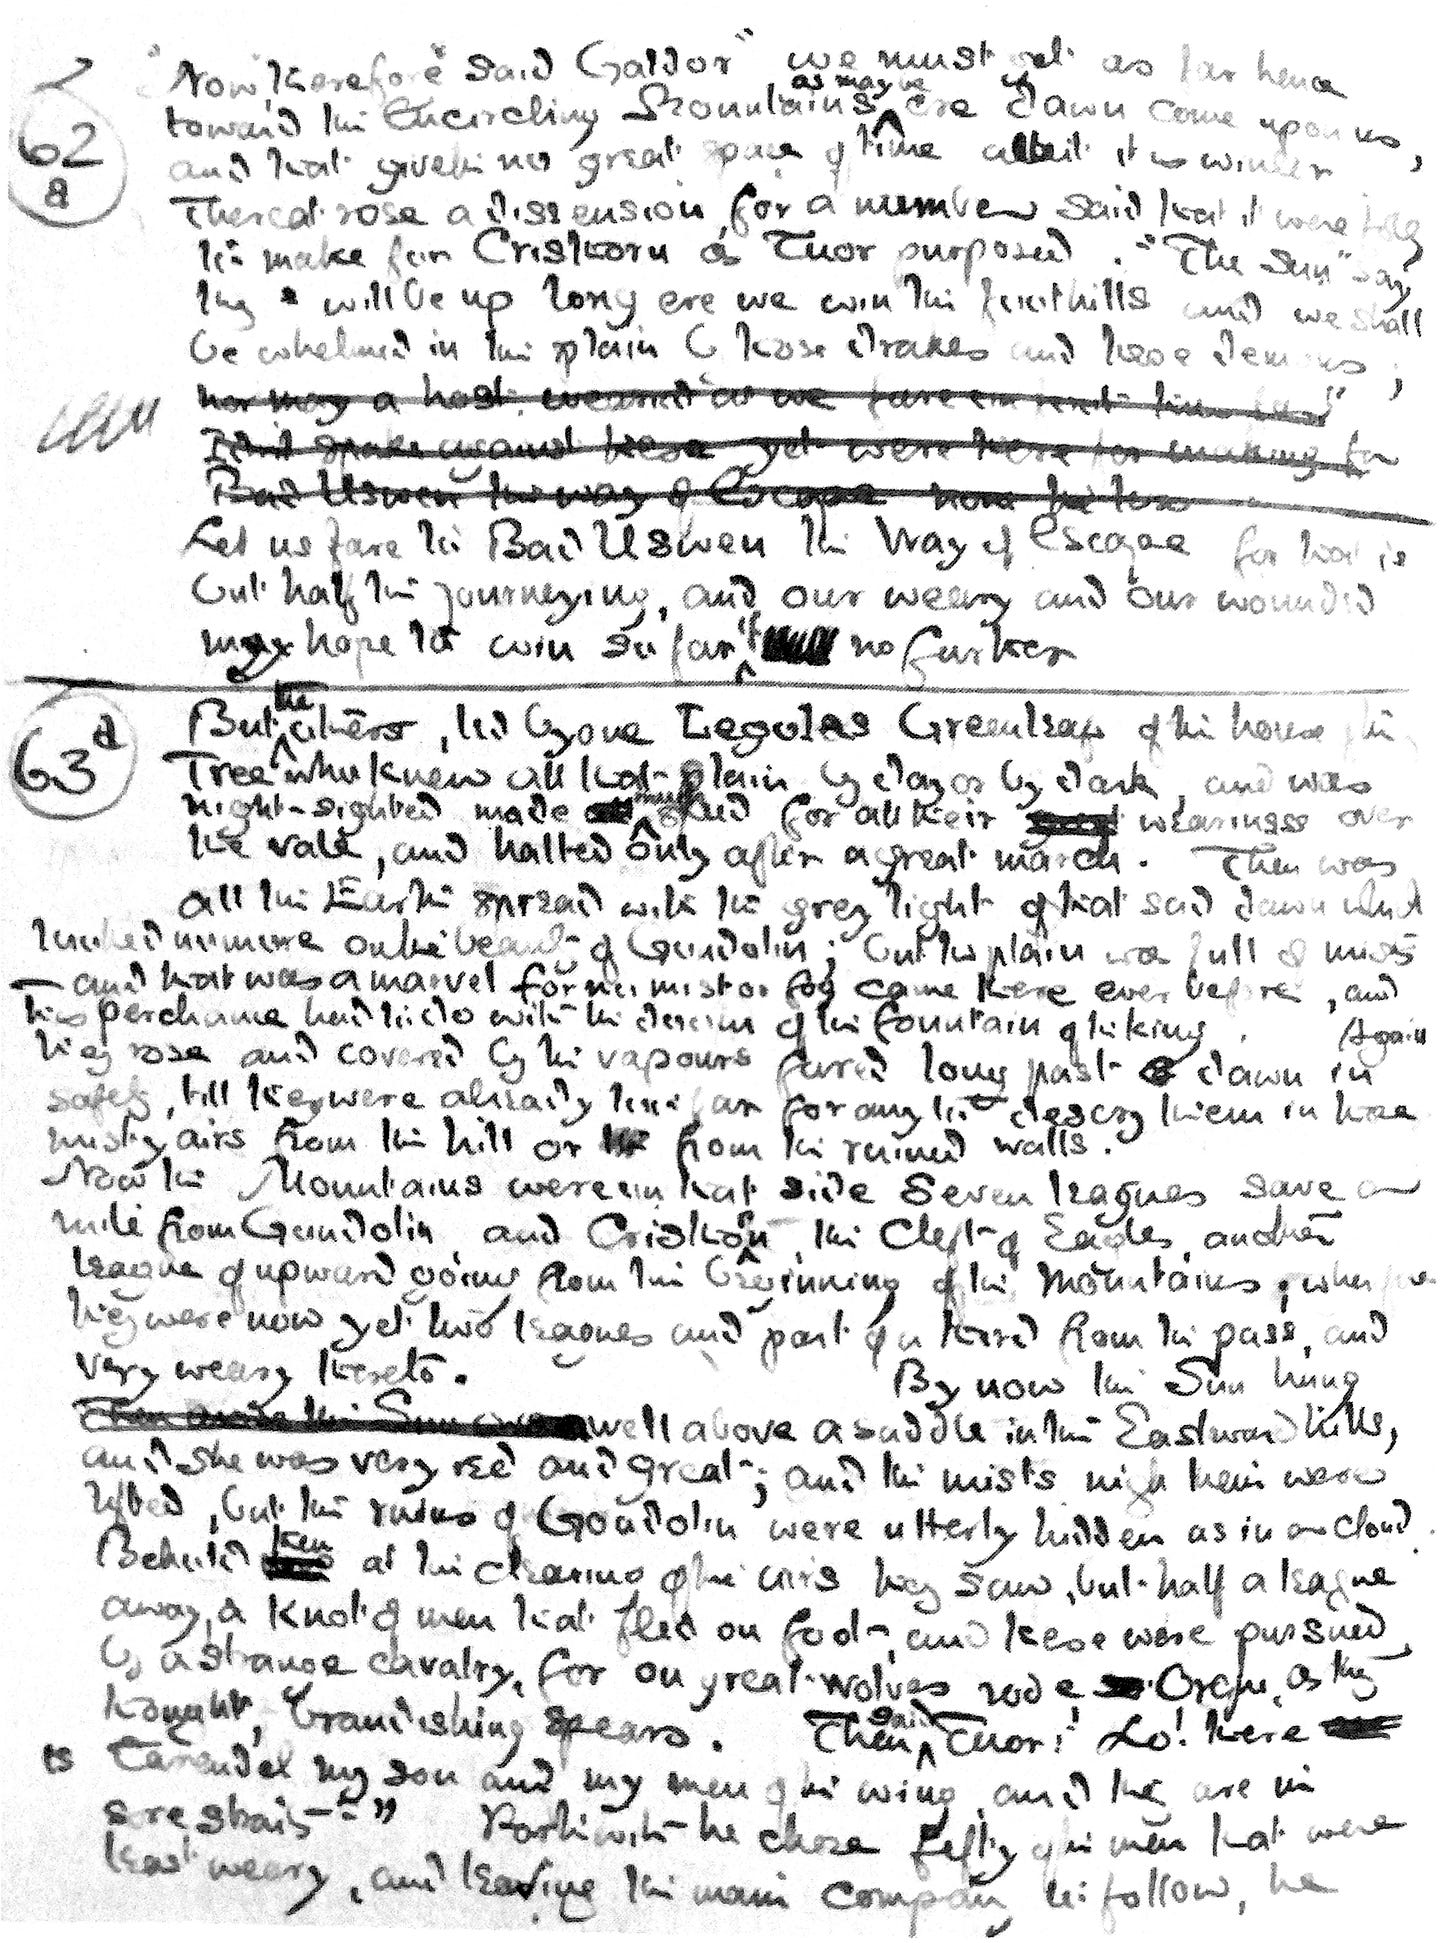 2
62
a
"Now therefore" said Galdor "we must get as far hence
as may be
toward the Encircling Mountains ere dawn come upon us,
and that giveth no great space of time albeit it is winter
Thereat rose a dissension, for a number said that it were folly
to make for Cristhorn as Tuor purposed. "The Sun" say
they "will be up long ere we win the foothills and we shall
be whelmed in the plain by those drakes and those demons;
nor may a host wearied as we fare
spake against these yet were these for making for
Bad Uswen the way of Escape
Let us fare to Bad Uswen the Way of Escape for that is
but half the journeying, and our weary and our wounded
may hope to win so far if no further
63 a
the
But others, led by one Legolas Greenleaf of the house of the
Tree who knew all that plain by day or by dark, and was
night-sighted made much speed for all their weariness over
the vale, and halted only after a great march. Then was
all the Earth spread with the grey light of that sad dawn which
looked no more on the beauty of Gondolin; but the plain was full of mists
— and that was a marvel for no mist or fog came there ever before, and
this perchance had to do with the doom of the fountain of the king. Again
they rose and covered by the vapours fared long past dawn in
safety, till they were already too far for any to descry them in those
misty airs from the hill or from the ruined walls.
Now the Mountains were on that side seven leagues save a
mile from Gondolin, and Cristhorn, the Cleft of Eagles, another
league of upward going from the beginning of the Mountains; wherefore
they were now yet two leagues and part of a third from the pass, and
very weary thereto. By now the Sun hung
well above a saddle in the Eastward hills,
and she was very red and great; and the mists nigh them were
lifted, but the ruins of Gondolin were utterly hidden as in a cloud.
Behold then at the clearing of the airs they saw, but half a league
away, a knot of men that fled on foot, and these were pursued
by a strange cavalry, for on great wolves rode Orcs, as they
thought, brandishing spears. Then said Tuor: Lo! there
is Earendel my son and my men of the wing and they are in
sore straits" Forthwith he chose fifty of the men that were
least weary, and leaving the main company to follow, he